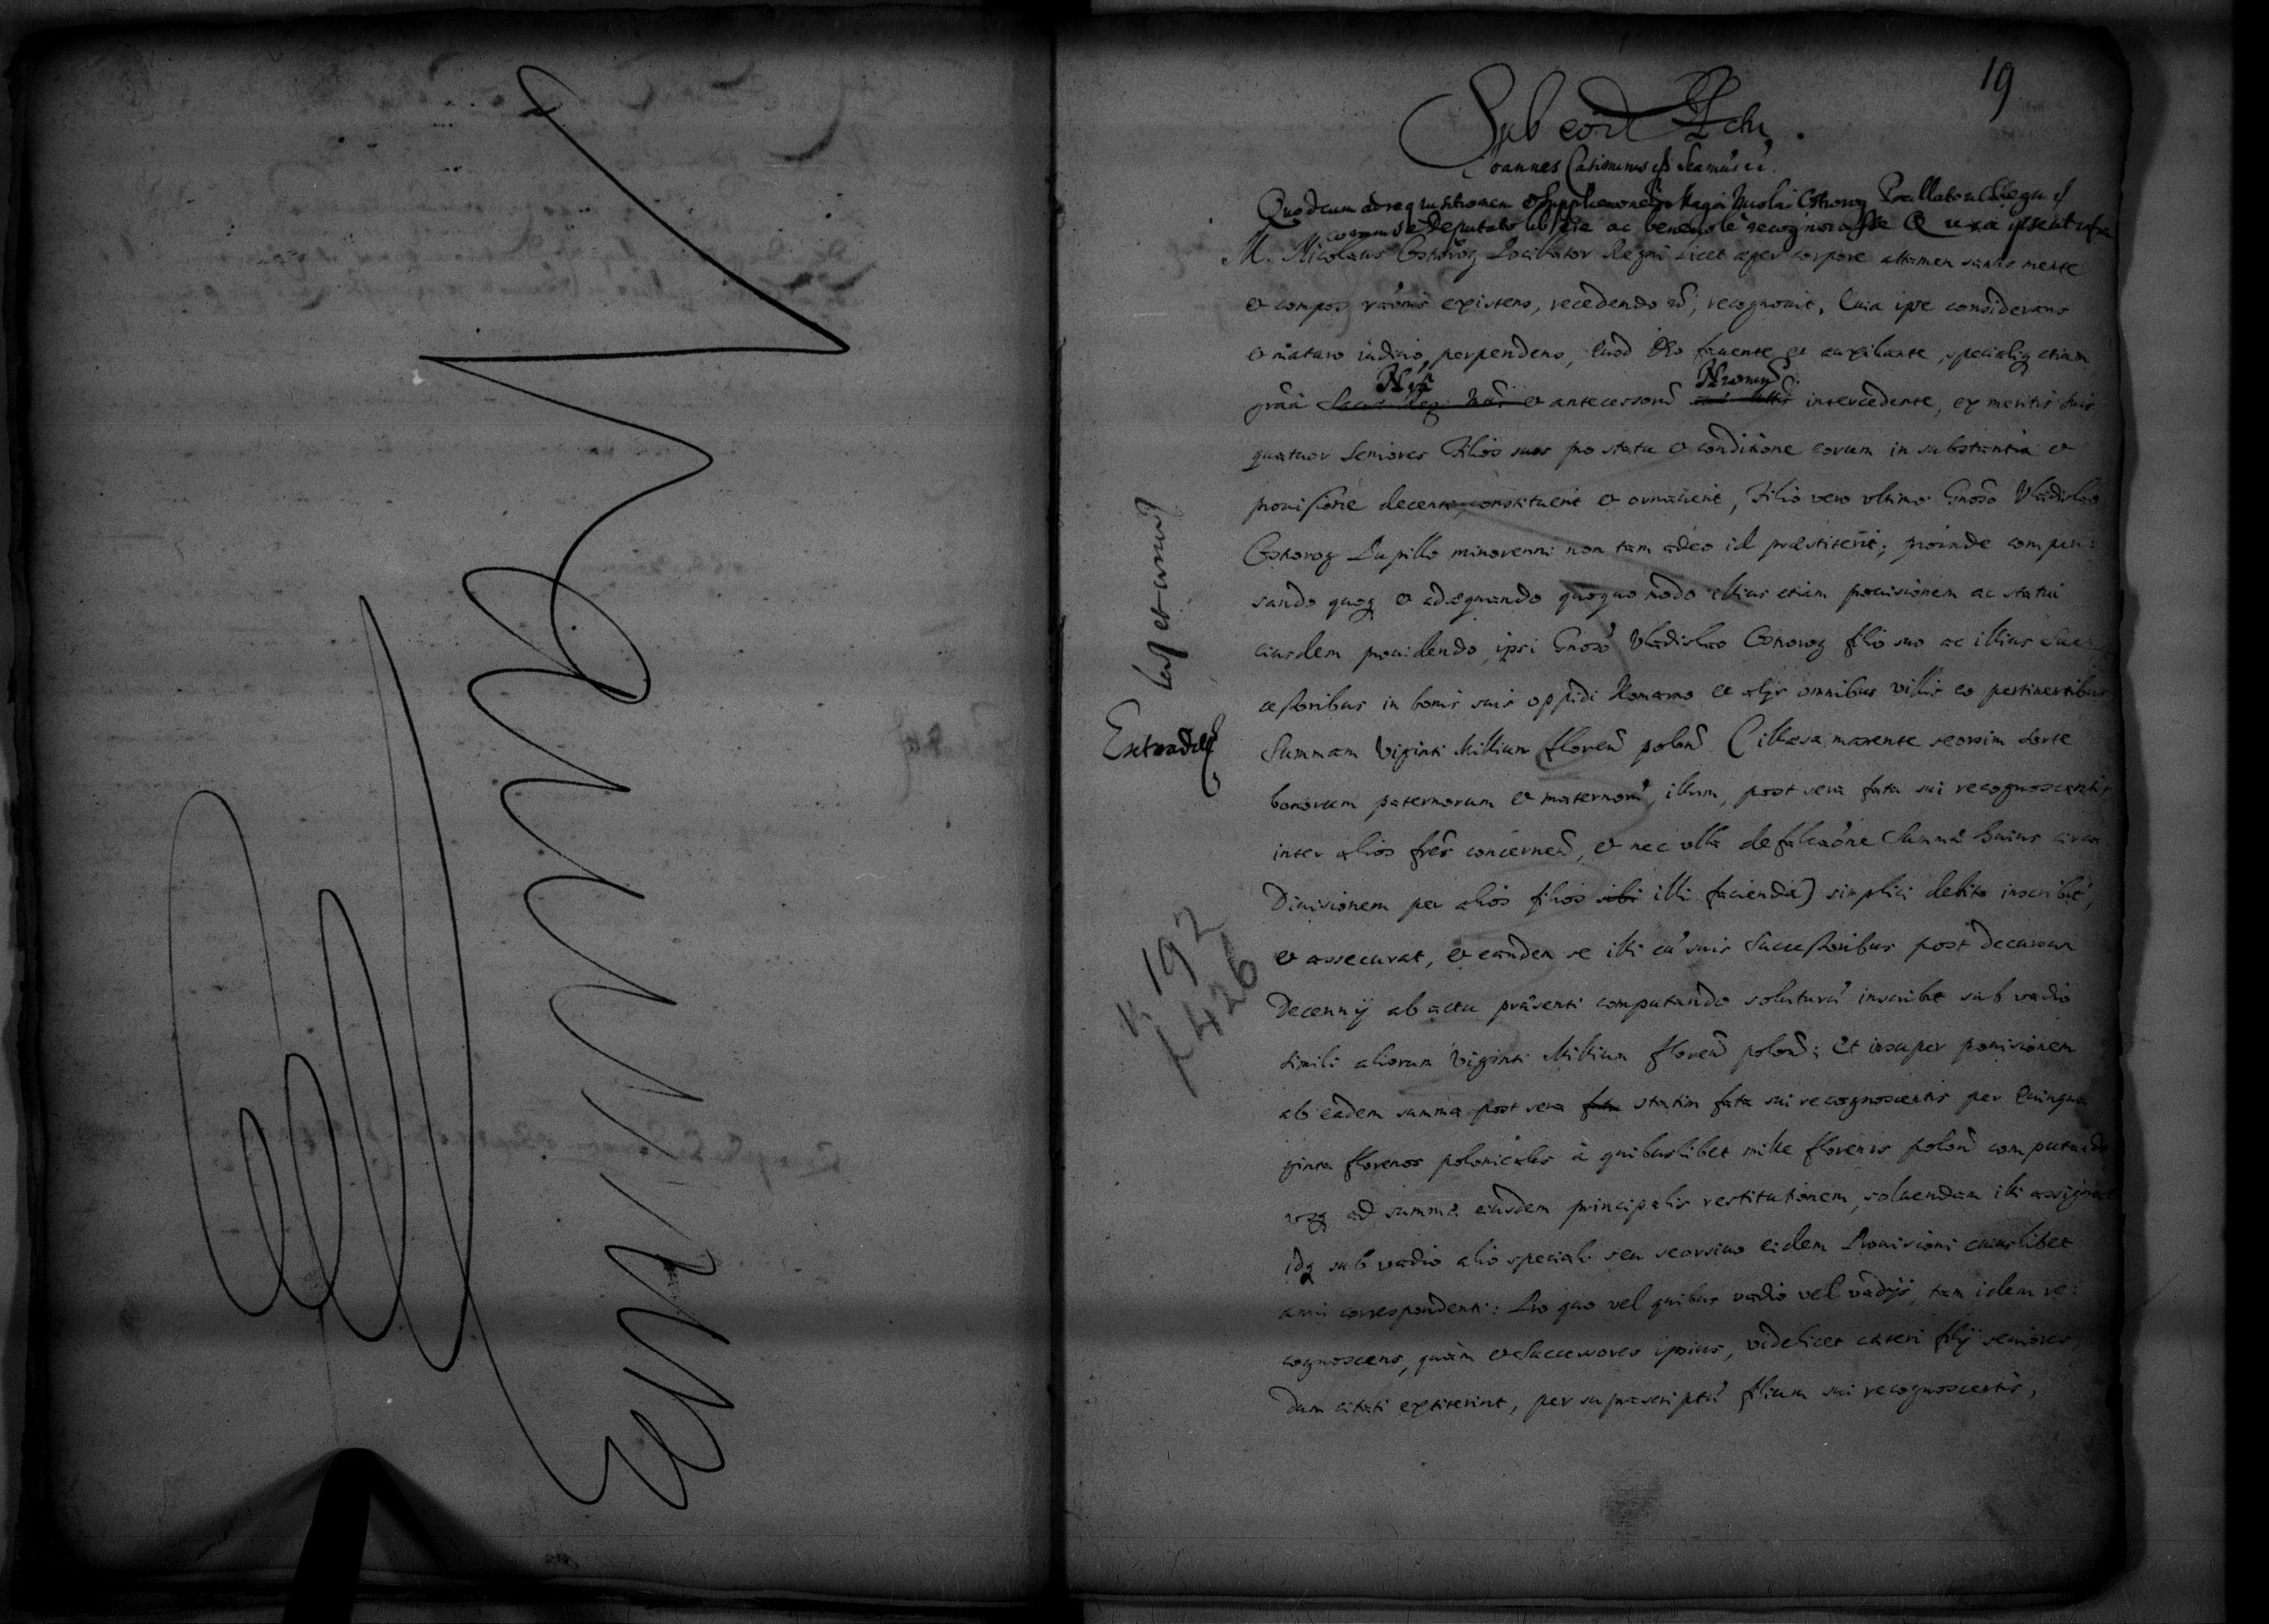 19
Sub eod Actu.
Joannes Casimirus &
Quod cum ad requisitionem & Nicolai Ostrorog Pocillatoris Regni
coram deputato libere ac benevole recognovisse
M. Nicolaus Ostrorog Pocillator Regni licet aeger corpore attamen sanus mente
& compos raõnis existens, recedendo recognovit, Quia ipse considerans
& maturo iudicio perpendens, Quod Deo favente et auxiliante, specialiq etiam
Nrã Nrorum
grãa Sacrae Reg. & antecessorũ intercedente, ex meritis suis
quatuor Seniores Filios suos pro statu & conditione eorum in substantia &
provisione decenti constituerit & ornaverit, Filio vero ultimo Gnoso Vladislao
Ostrorog Pupillo minorenni non tam adeo id praestiterit; proinde compen:
sando quoq & adaequando quoquo modo illius etiam provisionem ac statui
eiusdem providendo, ipsi Gnoso Vladislao Ostrorog filio suo ac illius Suc:
cessoribus in bonis suis oppidi Komarno et alijs omnibus villis eo pertinentibus
Summam Viginti Millium floren polon (illaesa manente seorsim sorte
bonorum paternorum & maternorũ, illum, post sera fata sui recognoscentis
inter alios frẽs concernen, & nec ulla defalcaõne Summae huius circa
Divisionem per alios filios sibi illi facienda) simplici debito inscribit,
& assecurat, & eandem se illi cũ suis Successoribus post decursum
Decennij ab actu praesenti computando soluturũ inscribit sub vadio
simili aliorum Viginti Millium floren polon; Et insuper provisionem
ab eadem summa post sera fata statim fata sui recognoscentis per Quinqua
ginta florenos polonicales à quibuslibet mille florenis polon computando
usq ad summae eiusdem principalis restitutionem, solvendam illi assignat
idq sub vadio alio speciali seu seorsivo eidem Provisioni cuiuslibet
anni correspondenti: Pro quo vel quibus vadio vel vadijs, tam idem re:
cognoscens, quàm & Successores ipsius, videlicet caeteri filij seniores,
dum citati extiterint, per suprascriptũ filium sui recognoscentis,
Extradit
192
426